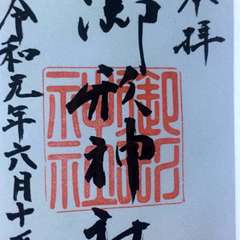 奉拝
御形神社
令和元年六月十
御形
神社